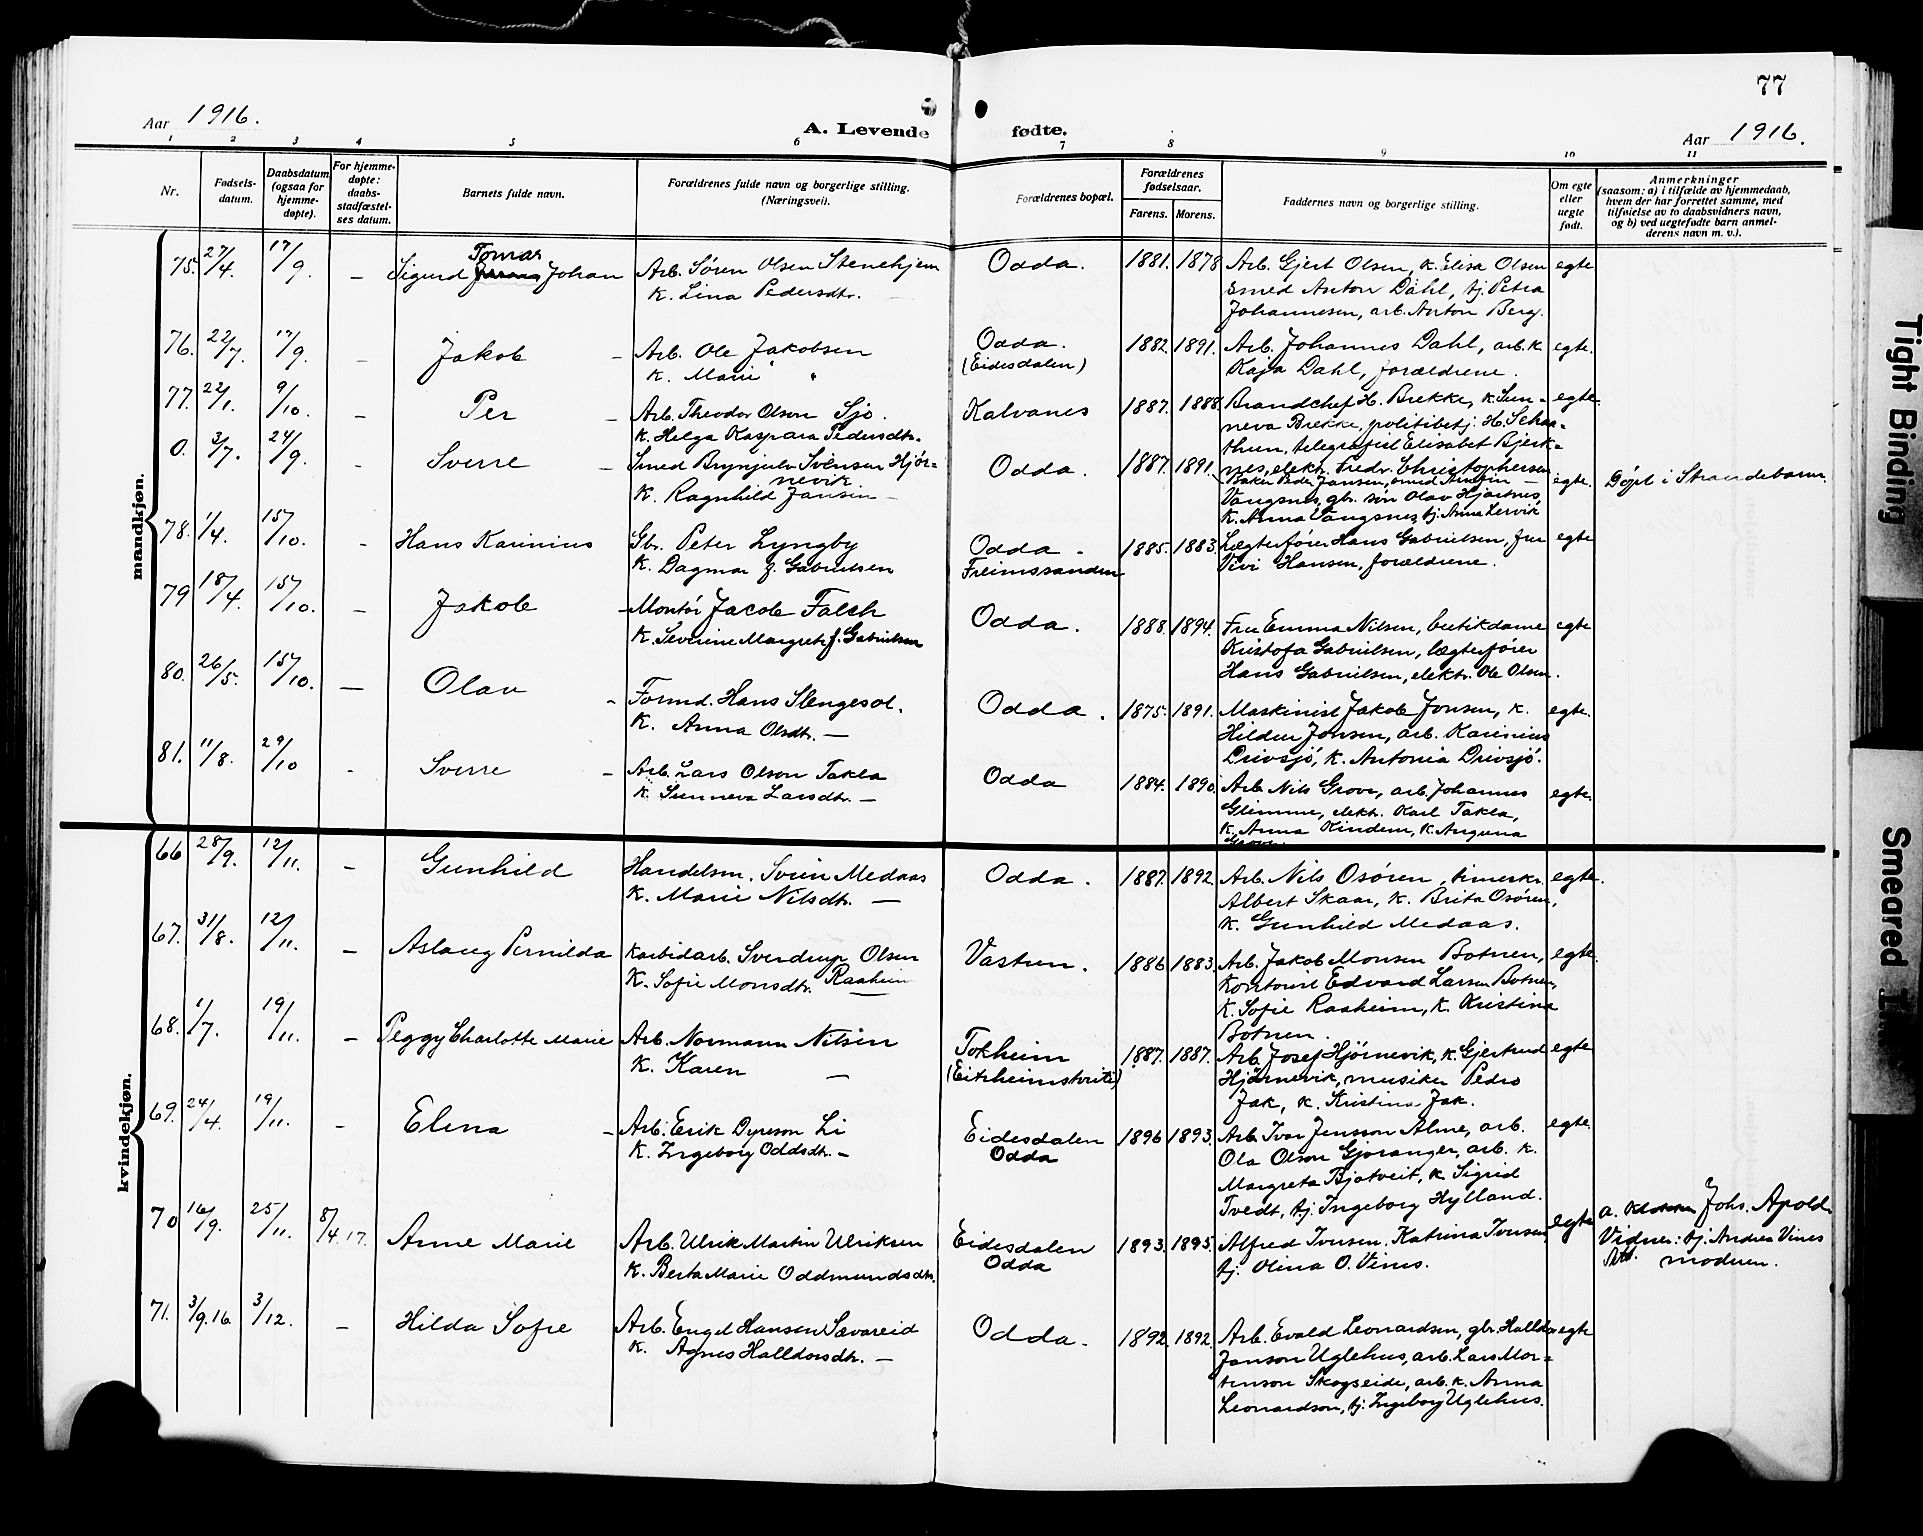 77
Aar 1916. A. Levende fødte. Aar 1916.
1 2 3 4 5 6 7 8 9 10 11
Nr. Fødsels-datum. Daabsdatum (ogsaa for hjemme-døpte). For hjemme-døpte: daabs-stadfæstel-ses datum. Barnets fulde navn. Forældrenes fulde navn og borgerlige stilling. (Næringsvei). Forældrenes bopæl. Forældrenes fødselsaar. Farens. Morens. Faddernes navn og borgerlige stilling. Om egte eller uegte født. Anmerkninger (saasom: a) i tilfælde av hjemmedaab, hvem der har forrettet samme, med tilføielse av to daabsvidners navn, og b) ved uegtefødte barn anmel-derens navn m. v.).
mandkjøn.
75. 27/4. 17/9. – Sigurd Tomas Johan Arb. Søren Olsen Stenehjem Odda. 1881. 1878 Arb. Gjert Olsen, k. Elisa Olsen egte
K. Lina Pedersdtr. – smed Anton Dahl, tj. Petra
Johannesen, arb. Anton Berg.
76. 22/7. 17/9. – Jakob – Arb. Ole Jakobsen Odda. 1882. 1891. Arb. Johannes Dahl, arb. k egte.
K. Marie " (Eidesdalen) Kaja Dahl, forældrene.
77. 22/1. 9/10. – Per – Arb. Theodor Olson Sjo. Kalvanes 1887. 1888. Brandchef H. Brekke, k. Sun- egte.
K. Helga Kaspara Pedersdtr. neva Brekke, politibetj. H. Schaa-
thun, telegrafist Elisabet Bjerk-
0. 3/7. 24/9. – Sverre – Smed Brynjulv Svensen Hjør- Odda. 1887. 1891. nes, elektr. Fredr. Christophersen
nevik Baker Peder Jansen, smed egte. Døpt i Strandebarm.
K. Ragnhild Jansen – Vangsnes, gbr. søn Olav Hjartnes,
K. Anna Vangsnes, tj. Anna Lervik
78. 1/4. 15/10. – Hans Karinius Gbr. Peter Lyngby Odda – 1885. 1883. Lægterfører Hans Gabrielsen, fru egte
K. Dagmar f. Gabrielsen Freimssanden Vivi Hansen, forældrene.
79 18/4. 15/10. – Jakob – Montør Jacob Falch Odda. 1888. 1894. Fru Emma Nilsen, butikdame egte
K. Severine Margrete f. Gabrielsen Kristofa Gabrielsen, lægterfører
Hans Gabrielsen, elektr. Ole Olsen.
80. 26/5. 15/10. – Olav – Formd. Hans Slengesol. Odda. 1875. 1891. Maskinist Jakob Jonsen, k. egte.
K. Anna Olsdtr. – Hilden Jonsen, arb. Karinius
Drivsjö, k. Antonia Drivsjö.
81. 11/8. 29/10 – Sverre – Arb. Lars Olson Takla Odda 1884. 1890. Arb. Nils Grove, arb. Johannes egte.
K. Sunneva Larsdtr. – Glimme, elektr. Karl Takla,
K. Anna Kindem, k. Anguna
Grove.
kvindekjøn.
66 28/9. 12/11. – Gunhild Handelsm. Svein Medaas Odda. 1887. 1892. Arb. Nils Osøren, tømerkr. egte.
K. Marie Nilsdtr. – Albert Skaar, k. Brita Osøren,
K. Gunhild Medaas.
67. 31/8. 12/11. – Aslaug Pernilda Karbidarb. Sverdrup Olsen Vastun. 1886 1883. Arb. Jakob Monsen Botnen, egte.
K. Sofie Monsdtr. Raaheim Kontorist Edvard Larsen Botnen,
K. Sofie Raaheim, k. Kristina
Botnen.
68. 1/7. 19/11. – Peggy Charlotte Marie Arb. Normann Nilsen Tokheim 1887. 1887. Arb. Josef Hjørnevik, k. Gjertrud egte
K. Karen – (Eitrheimstveite) Hjørnevik, musiker Pedro
Jak, k. Kristina Jak.
69. 24/4. 19/11. – Elena – Arb. Erik Dyreson Li Eidesdalen 1896 1893. Arb. Ivar Jensson Alme, arb. egte.
K. Ingeborg Oddsdtr. – Odda Ola Olson Gjøranger, arb. k.
Margreta Bjotveit, k. Sigrid
Tvedt, tj. Ingeborg Hylland.
70 16/9. 25/11. 8/4.17. Anne Marie Arb. Ulrik Martin Ulriksen Eidesdalen 1893. 1895. Alfred Iversen, Katrina Iversen, egte a. Johs. Apold
K. Berta Marie Oddmundsdtr. Odda tj. Olina O. Vines. Vidner: tj. Andrea Vines
moderen.
71. 3/9.16. 3/12. – Hilda Sofie Arb. Engel Hansen Sævareid Odda. 1892. 1892. Arb. Evald Leonardsen, gbr. Halldor egte
K. Agnes Halldorsdtr. – Janson Uglehus, arb. Lars Mor-
tenson Skogseide, arb. k. Anna
Leonardson, tj. Ingeborg Uglehus.
Tight Binding
Smeared